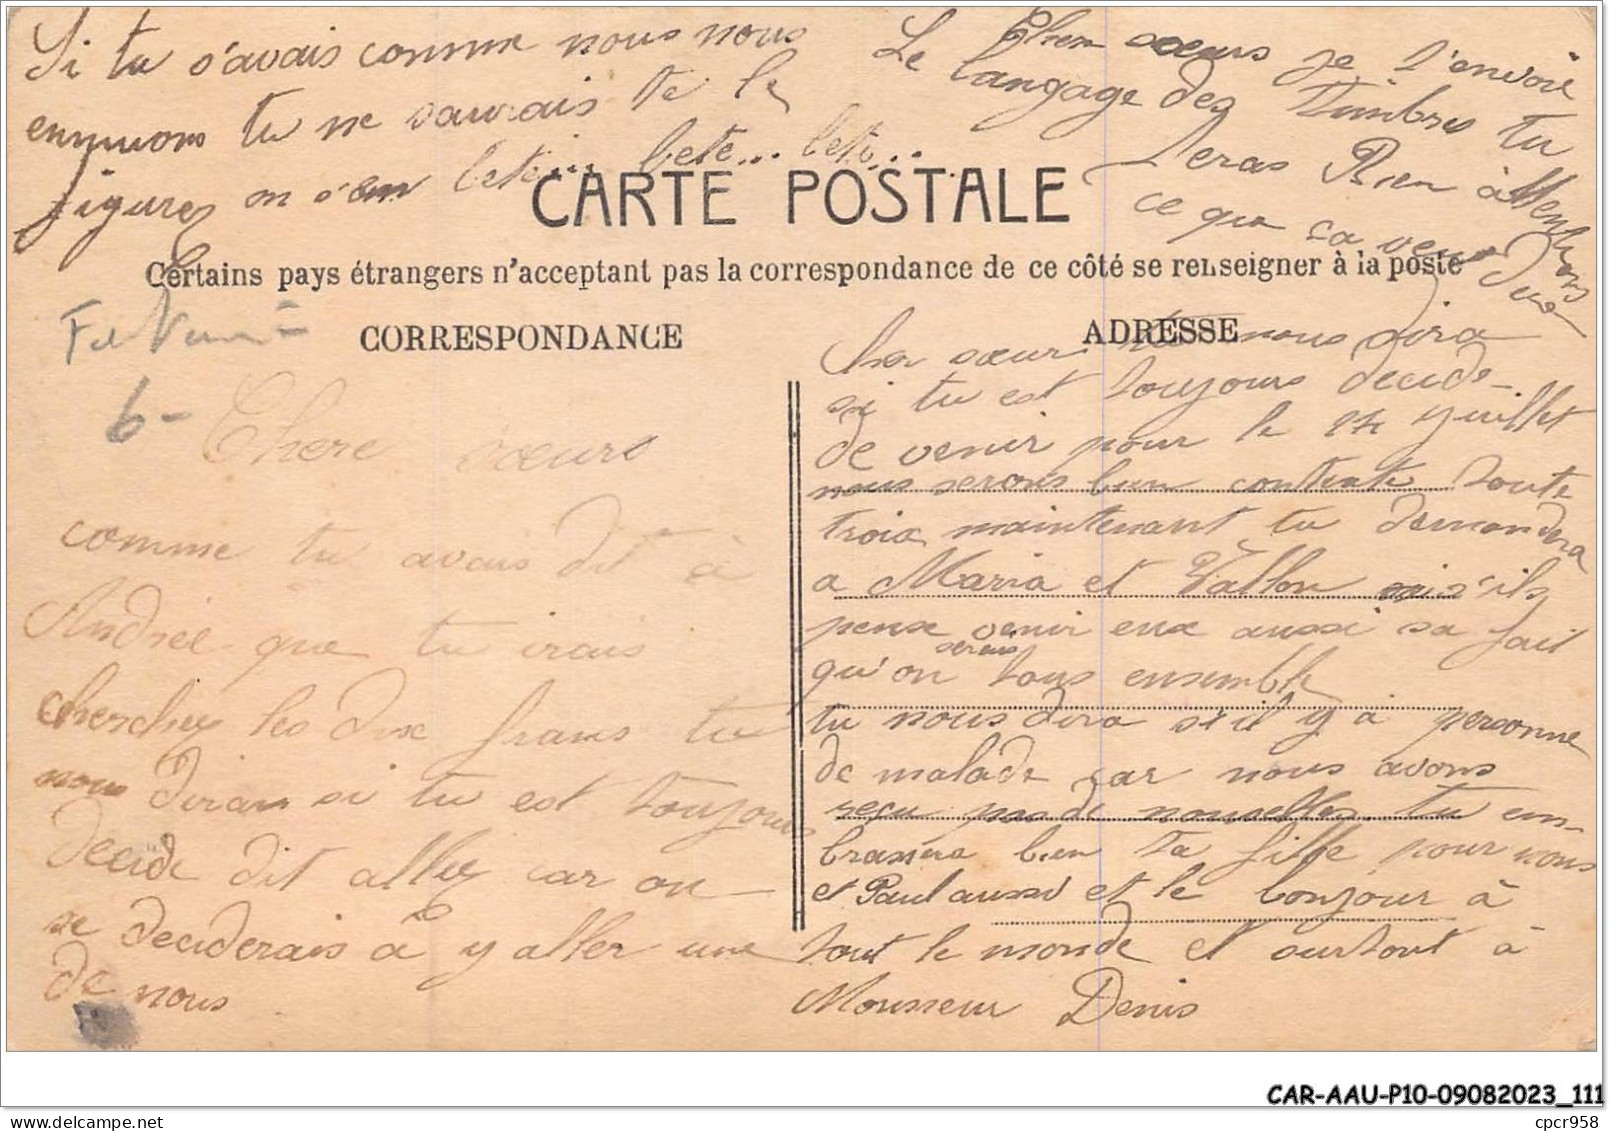 Si tu s'avais comme nous nous
ennuions tu ne saurais te le
figurez on s'em bete... bete... bete...
Cher soeurs je t'envoie
Le langage des timbres tu
feras Bien attentions
ce que ça veux dire
CARTE POSTALE
Certains pays étrangers n'acceptant pas la correspondance de ce côté se renseigner à la poste
CORRESPONDANCE
ADRESSE
6-
Chere soeurs
comme tu avais dit à
Andrée que tu irais
cherchez les dix francs tu
nous dirais si tu est toujours
decide dit allez car on
se deciderais a y aller une
de nous
Cher soeur nous dira
si tu est toujours decide
de venir pour le 14 juillet
nous serons bien contente toute
trois maintenant tu demandera
a Maria et Vallon si s'ils
pense venir eux aussi sa fait
qu'on serais tous ensemble
tu nous dira s'il y à personne
de malade car nous avons
reçu pas de nouvelles tu em-
brassera bien ta fille pour nous
et Paul aussi et le bonjour à
tout le monde et surtout à
Monsieur Denis
CAR-AAU-P10-09082023_111
cpcr958